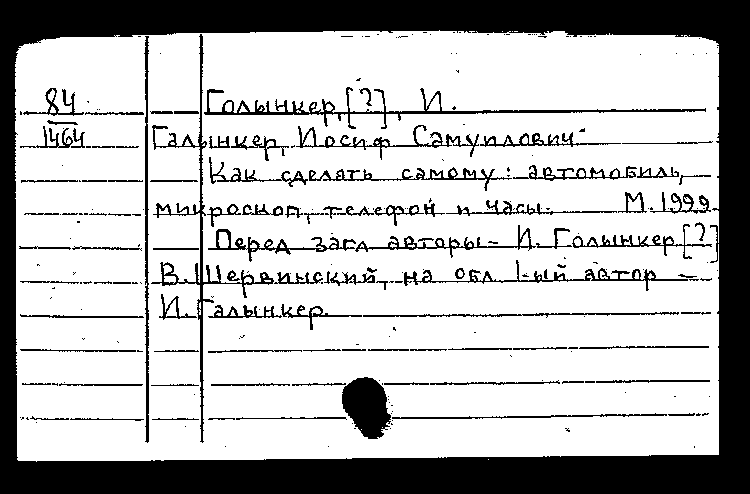 84 Голынкер, [?], И.
1464 Галынкер, Иосиф Самуилович-
Как сделать самому: автомобиль,
микроскоп, телефон и часы. М. 1999.
Перед загл авторы - И. Голынкер [?]
В. Шервинский, на обл 1-ый автор -
И. Галынкер.